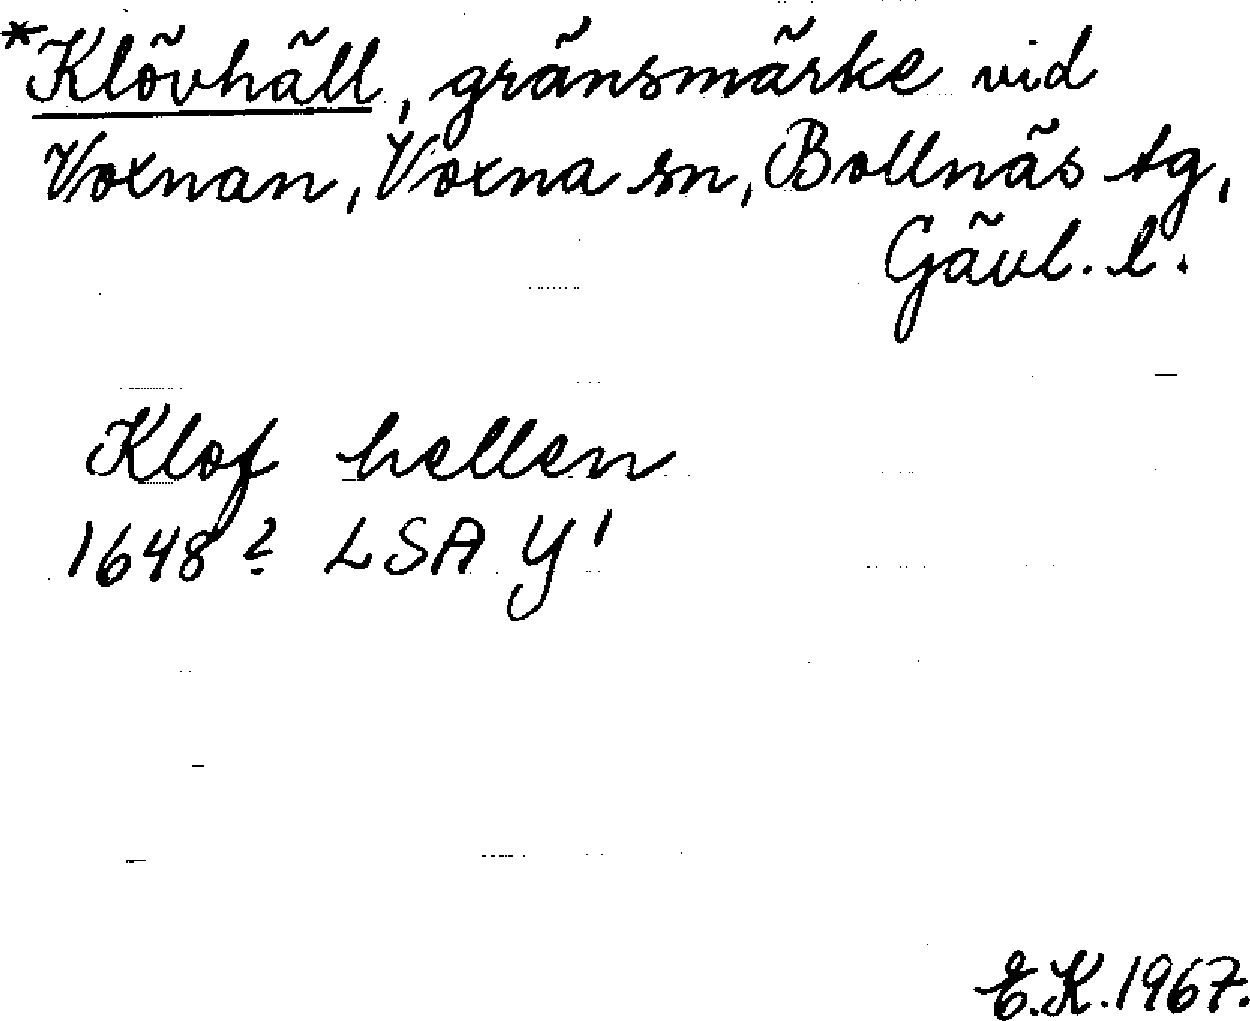 *Klövhäll, gränsmärke vid
Voxnan, Voxna sn, Bollnäs tg,
Gävl. l.
Klof hellen
1648? LSA Y1
E.K. 1967.